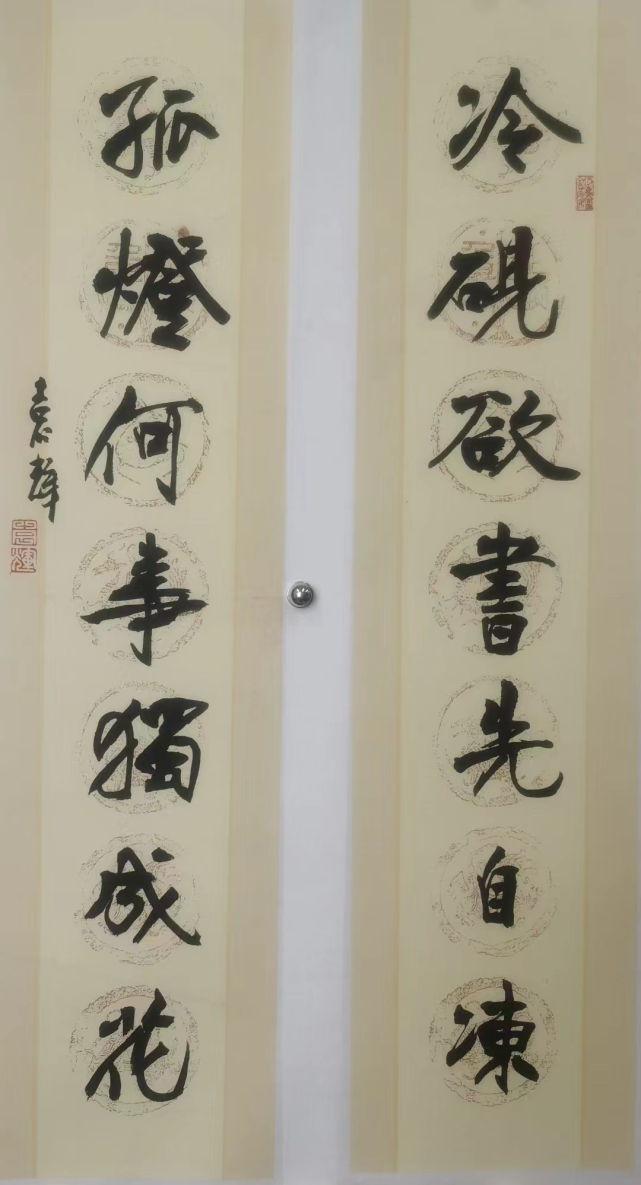 冷硯欲書先自凍
孤燈何事獨成花
袁輝